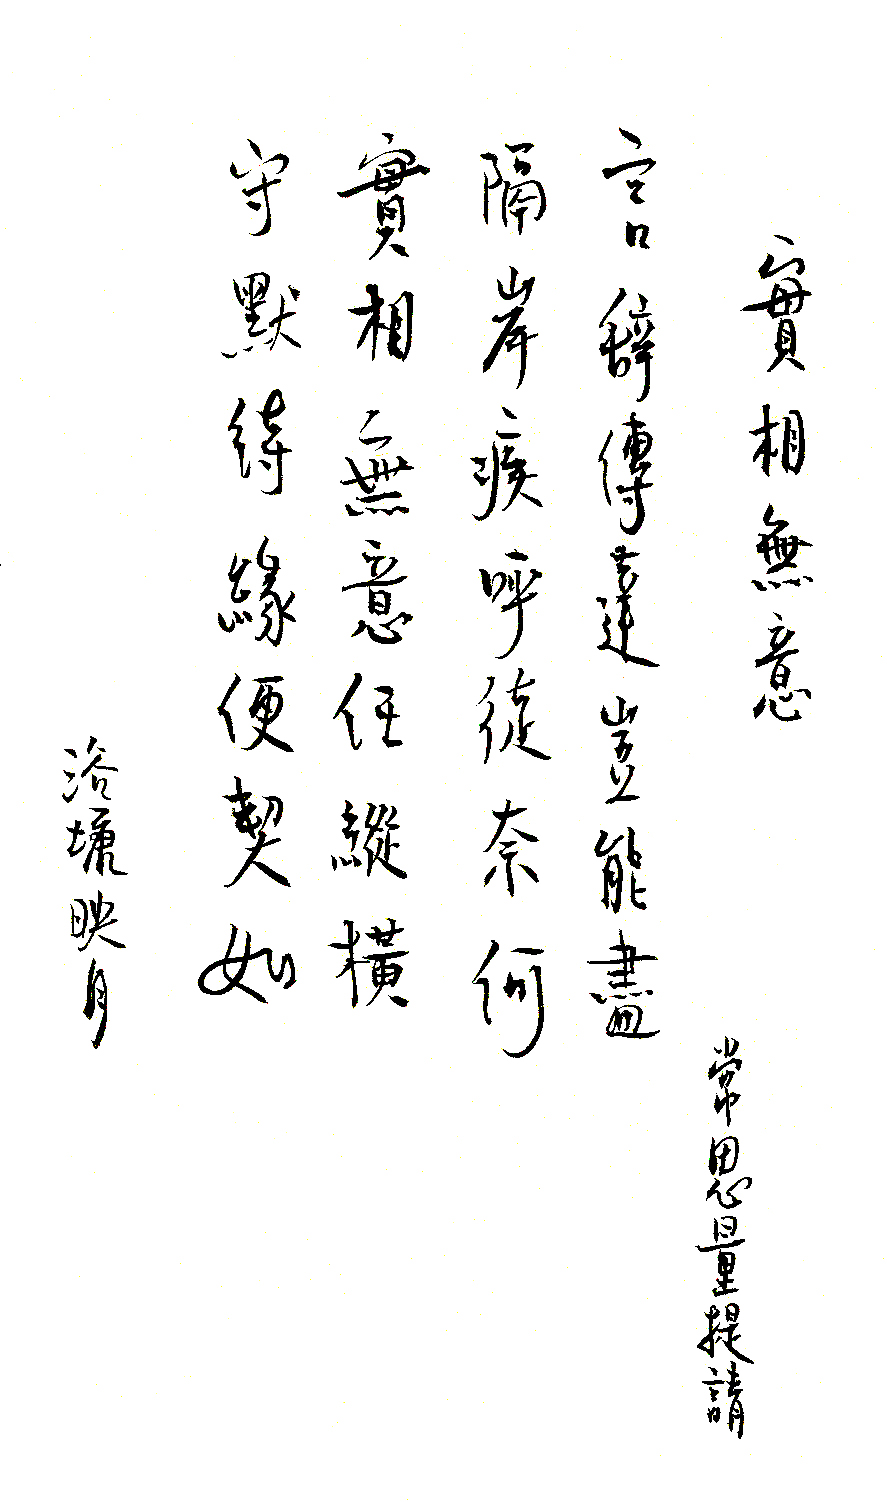 實相無意
常思量提請
言辭傳達豈能盡
隔岸疾呼徒奈何
實相無意任縱橫
守默待緣便契如
浴墉映月